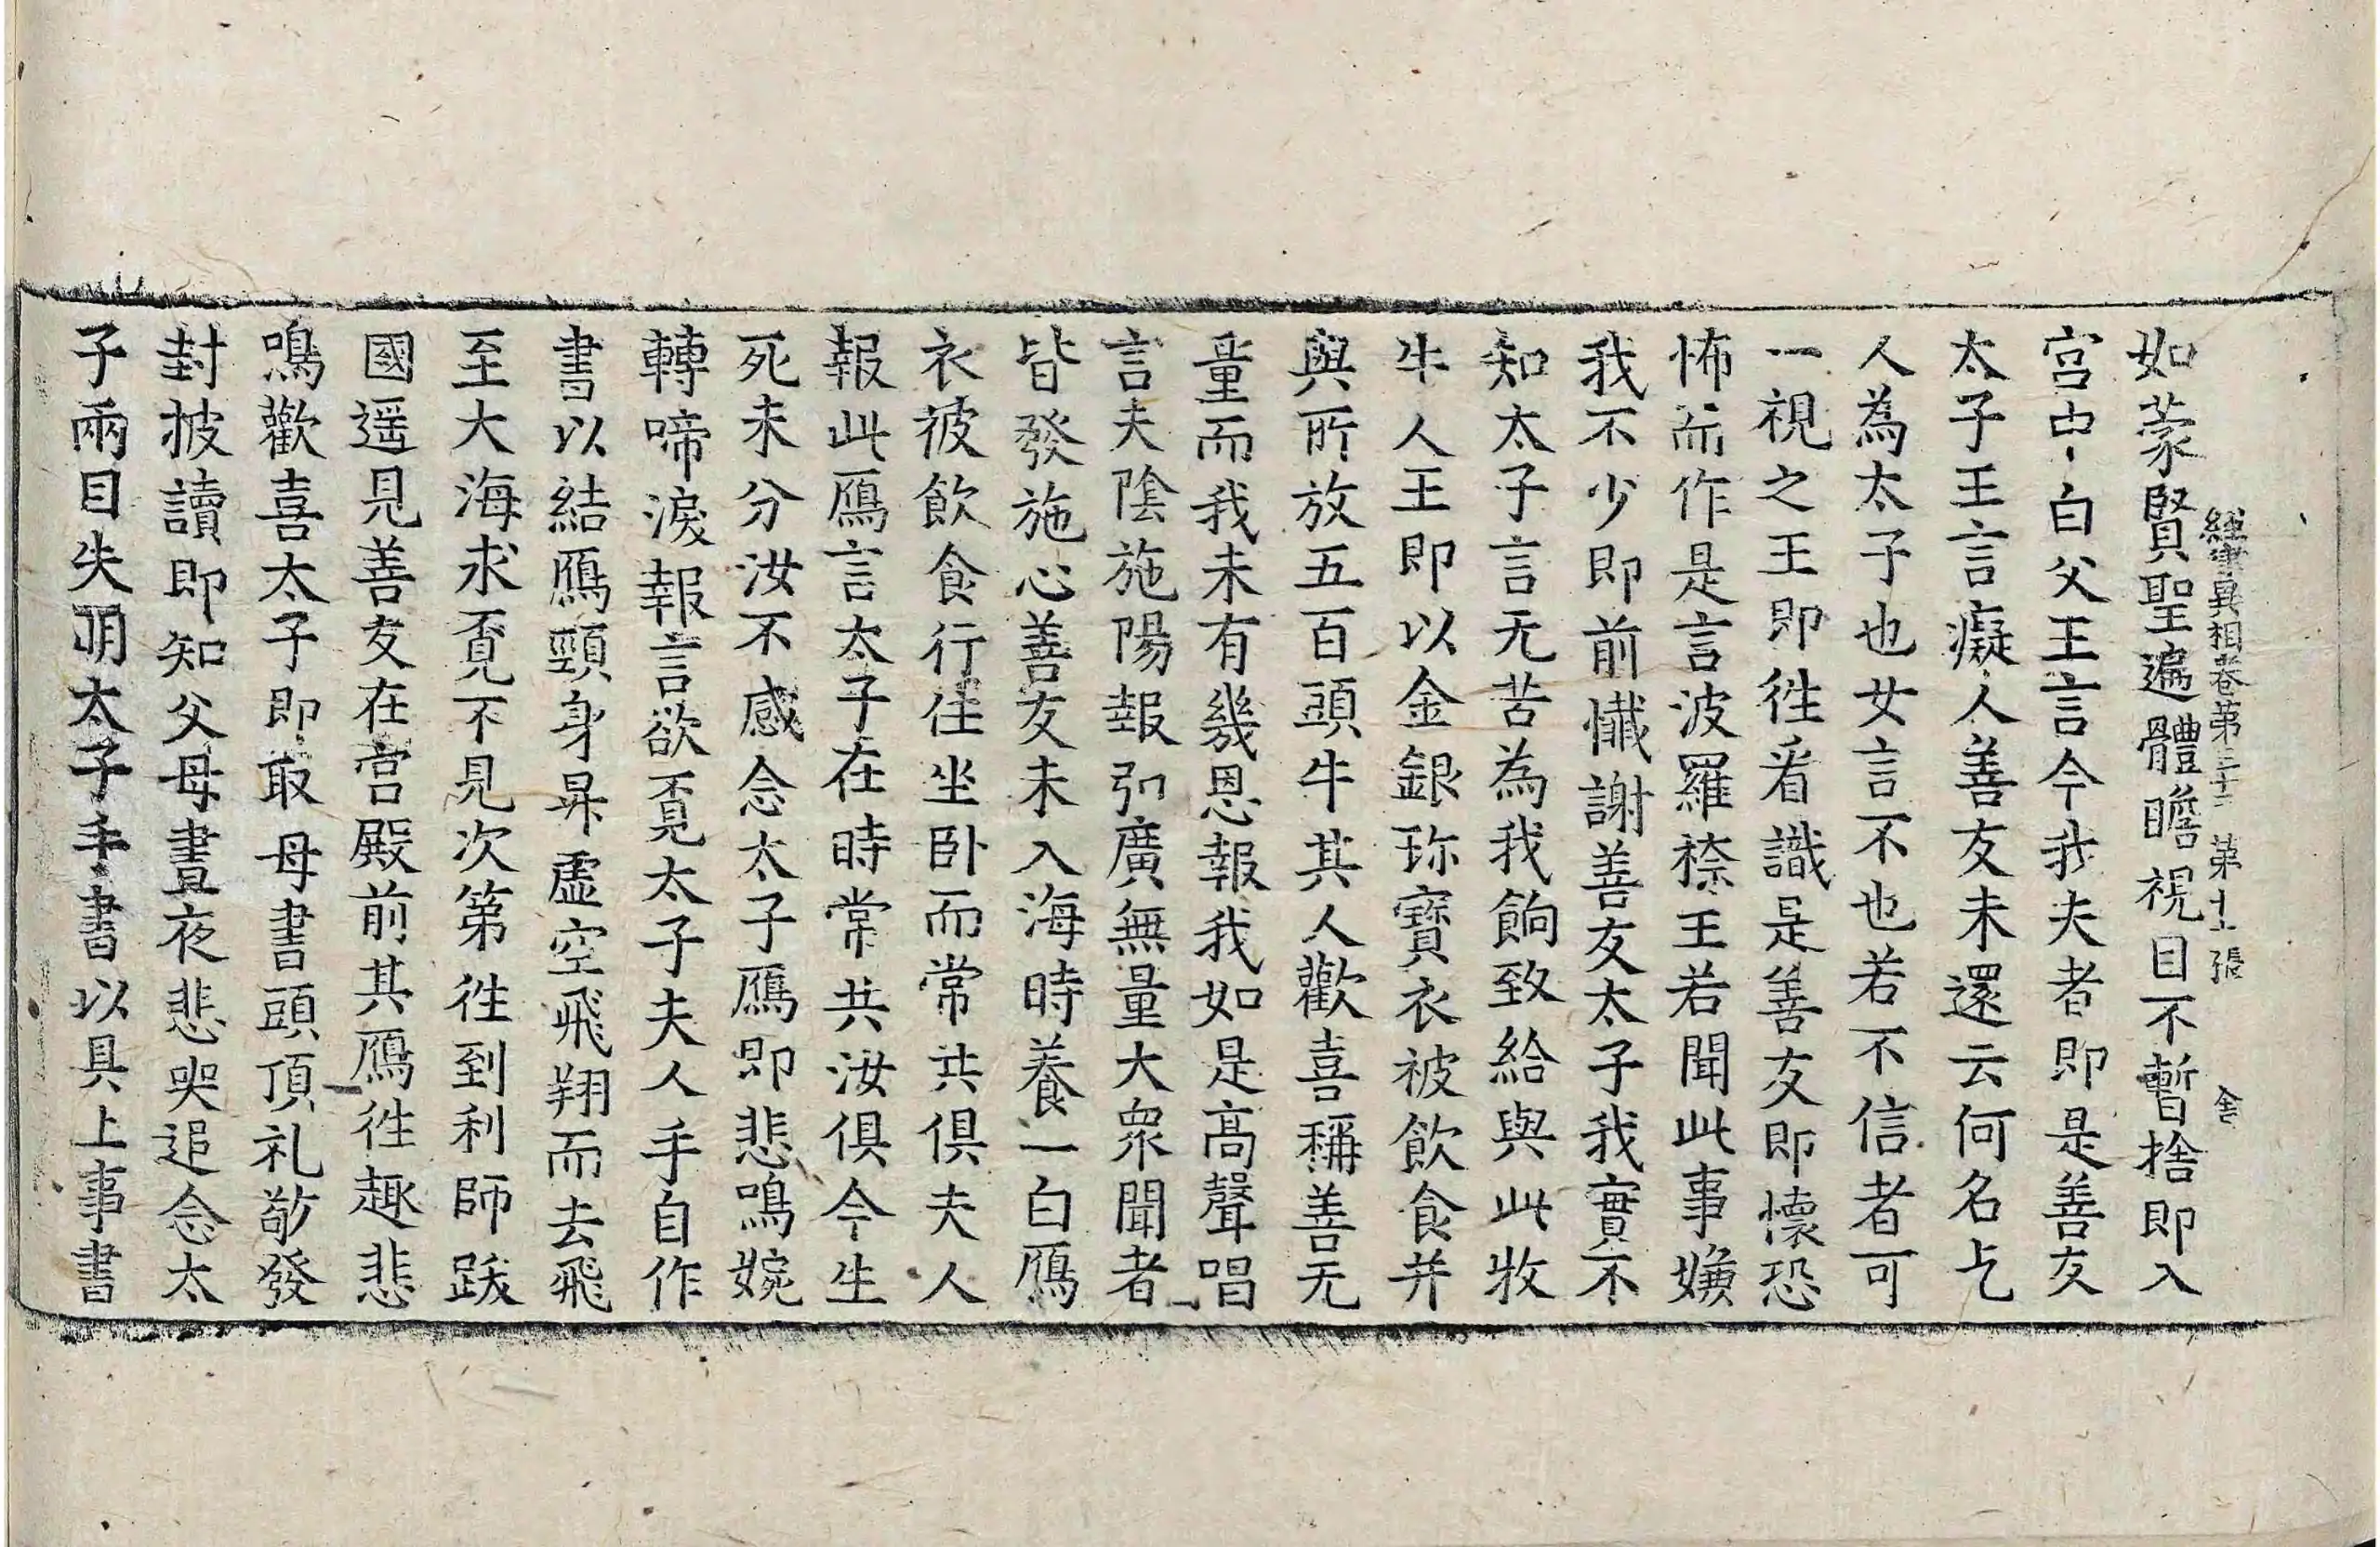 如蒙賢聖遍體瞻視目不暫捨即入
經律異相卷第三十二 第十一張 舍
宮中白父王言今我夫者即是善友
太子王言癡人善友未還云何名乞
人為太子也女言不也若不信者可
一視之王即徃看識是善友即懷恐
怖而作是言波羅㮈王若聞此事嫌
我不少即前懺謝善友太子我實不
知太子言无苦為我餉致給與此牧
牛人王即以金銀珎寶衣被飲食并
與所放五百頭牛其人歡喜稱善无
量而我未有幾恩報我如是高聲唱
言夫陰施陽報弘廣無量大眾聞者
皆發施心善友未入海時養一白鴈
衣被飲食行住坐卧而常共俱夫人
報此鴈言太子在時常共汝俱今生
死未分汝不感念太子鴈即悲鳴婉
轉啼淚報言欲覔太子夫人手自作
書以結鴈頸身昇虛空飛翔而去飛
至大海求覔不見次第徃到利師跋
國遥見善友在宮殿前其鴈徃趣悲
鳴歡喜太子即取母書頭頂礼敬發
封披讀即知父母晝夜悲哭追念太
子兩目失明太子手書以具上事書